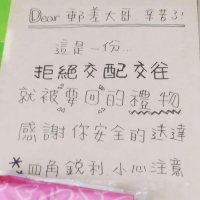 Dear 郵差大哥..辛苦了!
這是一份...
拒絕交配交往
就被要回的禮物
感謝你安全的送達
*四角銳利 小心注意